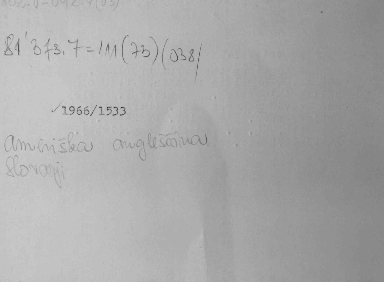 81'373.7=111(73)(038)
✓1966/1533
ameriška angleščina
slovarji